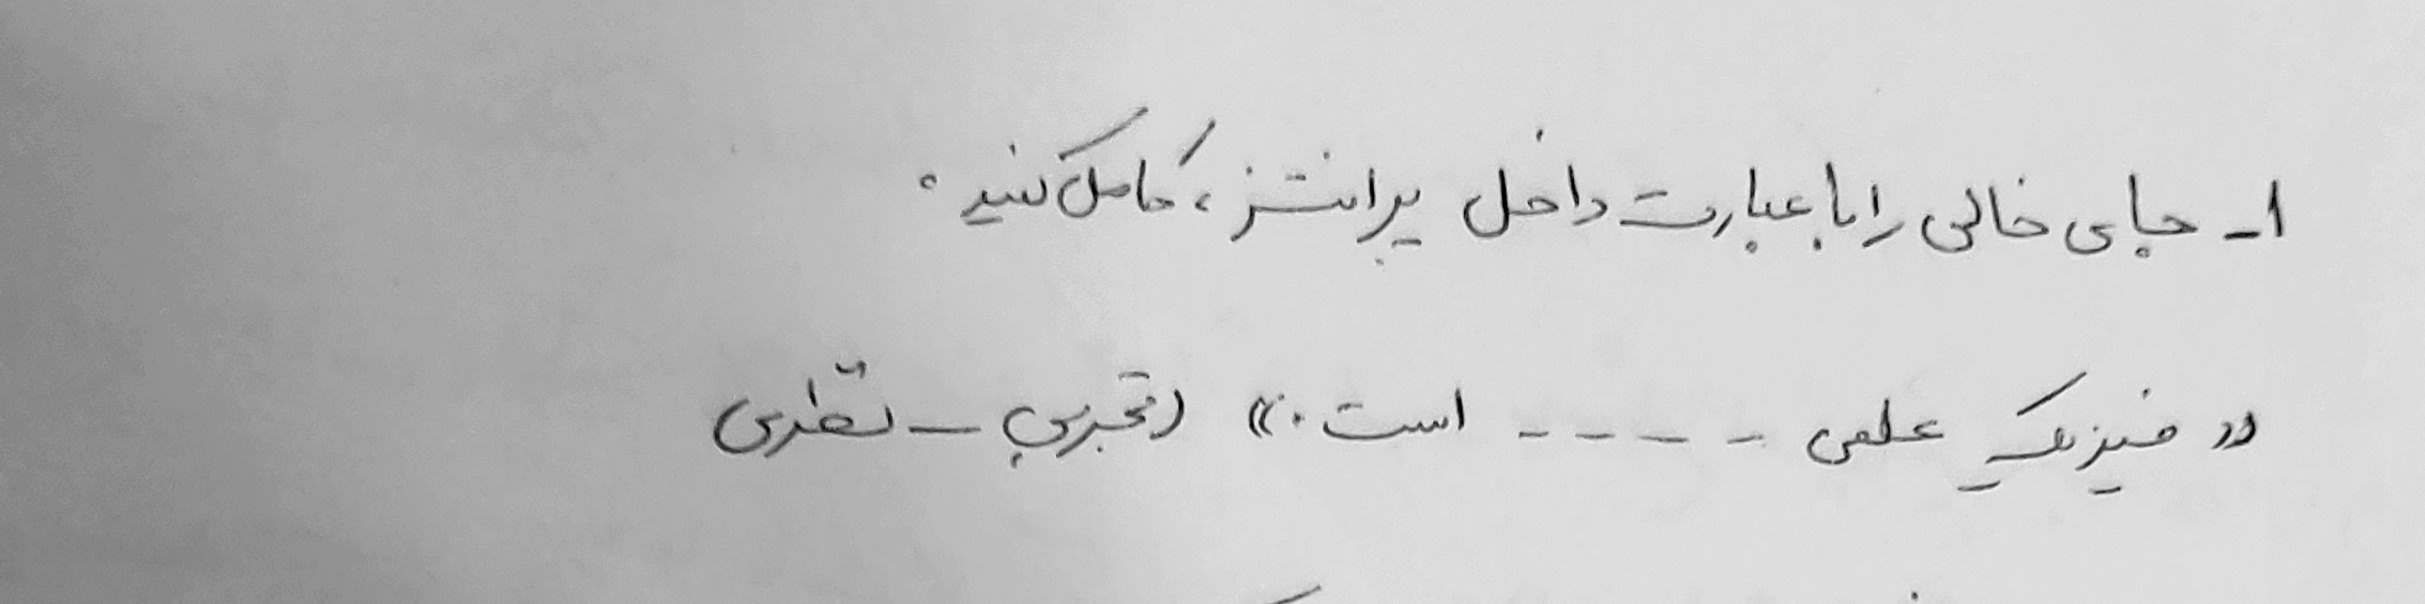 ۱- جای خالی را با عبارت داخل پرانتز، کامل کنید.
«فیزیک علمی - - - - است.» (تجربی - نظری